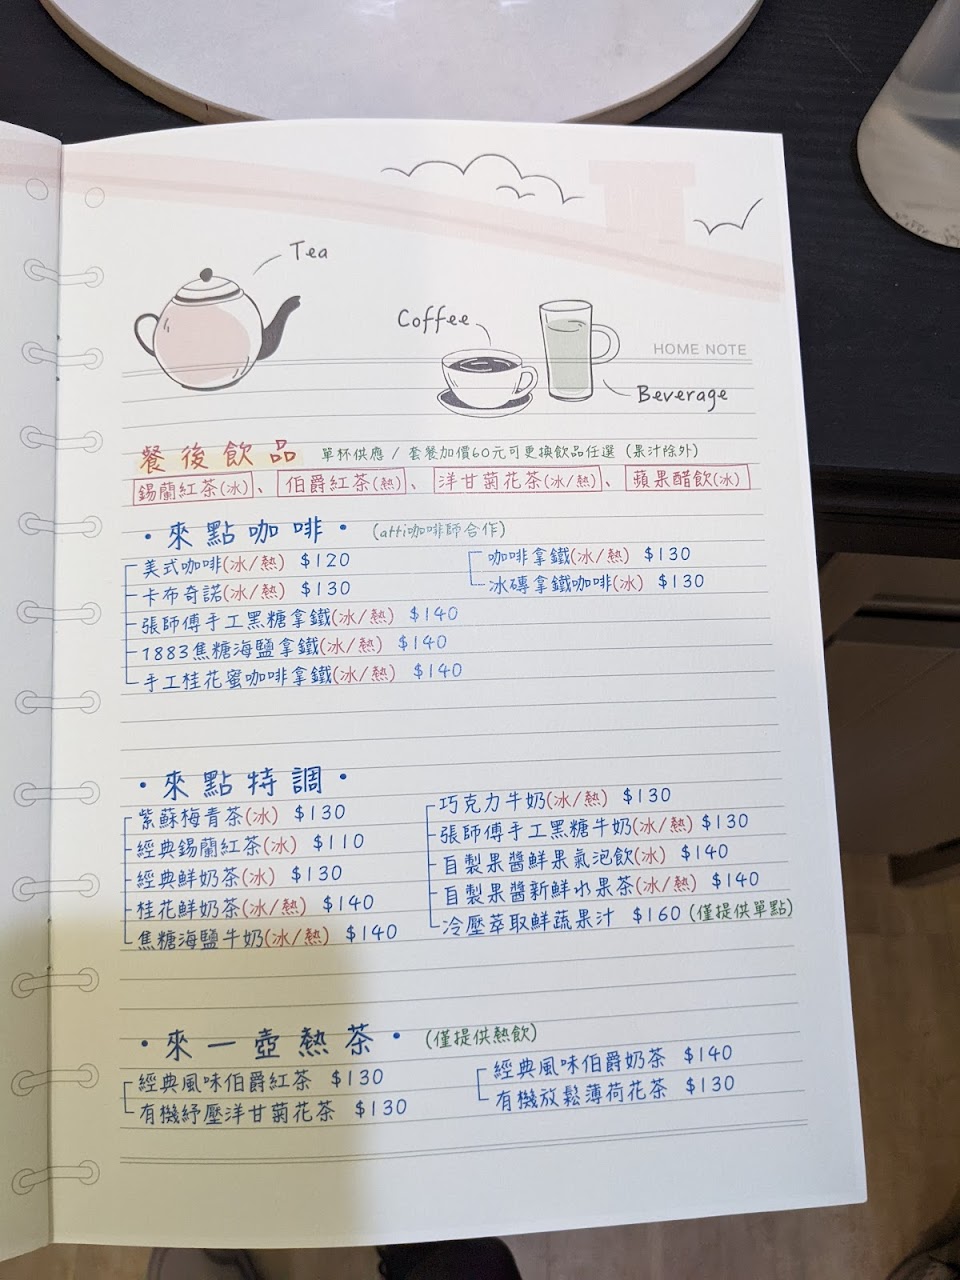 Tea
Coffee
HOME NOTE
Beverage
餐後飲品 單杯供應 / 套餐加價60元可更換飲品任選 (果汁除外)
錫蘭紅茶(冰)、伯爵紅茶(熱)、洋甘菊花茶(冰/熱)、蘋果醋飲(冰)
・來點咖啡・ (atti咖啡師合作)
美式咖啡(冰/熱) $120
卡布奇諾(冰/熱) $130
張師傅手工黑糖拿鐵(冰/熱) $140
1883焦糖海鹽拿鐵(冰/熱) $140
手工桂花蜜咖啡拿鐵(冰/熱) $140
咖啡拿鐵(冰/熱) $130
冰磚拿鐵咖啡(冰) $130
・來點特調・
紫蘇梅青茶(冰) $130
經典錫蘭紅茶(冰) $110
經典鮮奶茶(冰) $130
桂花鮮奶茶(冰/熱) $140
焦糖海鹽牛奶(冰/熱) $140
巧克力牛奶(冰/熱) $130
張師傅手工黑糖牛奶(冰/熱) $130
自製果醬鮮果氣泡飲(冰) $140
自製果醬新鮮水果茶(冰/熱) $140
冷壓萃取鮮蔬果汁 $160 (僅提供單點)
・來一壺熱茶・ (僅提供熱飲)
經典風味伯爵紅茶 $130
有機紓壓洋甘菊花茶 $130
經典風味伯爵奶茶 $140
有機放鬆薄荷花茶 $130